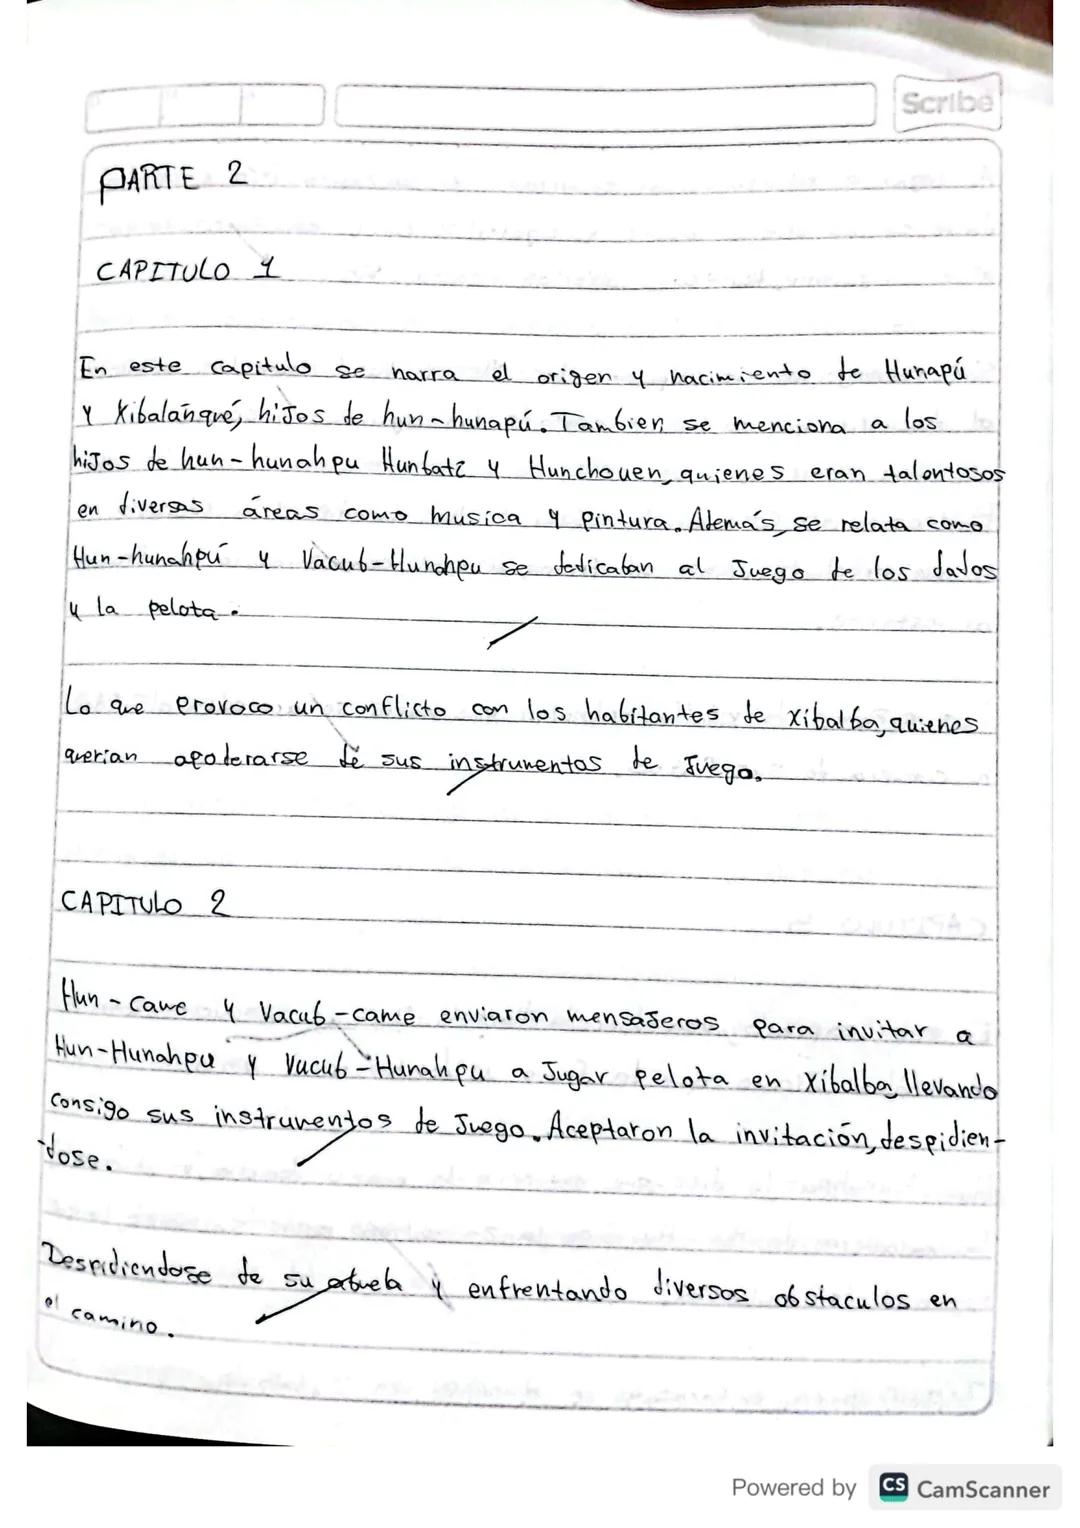 Scribe
PARTE 2
CAPITULO 1
En este capitulo se narra el origen y nacimiento de Hunapú
y Xibalanqué, hijos de hun-hunapú. Tambien se menciona a los
hijos de hun-hunahpu Hunbatz y Hunchouen, quienes eran talontosos
en diversas áreas como musica y pintura. Además, se relata como
Hun-hunahpú y Vacub-Hunahpu se dedicaban al Juego de los dados
y la pelota.
Lo que provoco un conflicto con los habitantes de xibalba, quienes
querian apoderarse de sus instrumentos de Juego.
CAPITULO 2
Hun-came y Vacub-came enviaron mensajeros para invitar a
Hun-Hunahpu y Vucub-Hunahpu a Jugar pelota en Xibalba, llevando
consigo sus instrumentos de Juego. Aceptaron la invitación, despidien-
-dose.
Despidiendose de su abuela y enfrentando diversos obstaculos en
el camino.
Powered by CS CamScanner